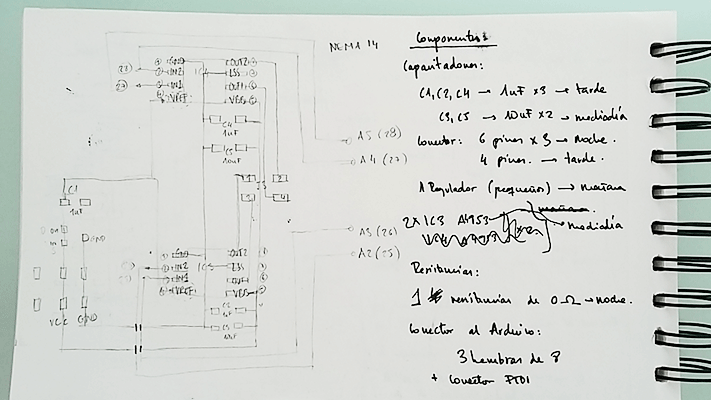 NEMA 14
Componentes
Capacitadores:
C1, C2, C4 → 1uF x3 → tarde
C3, C5 → 10uF x2 → mediodía
Conector: 6 pines x 3 → noche.
4 pines. → tarde.
1 Regulador (pequeños) → mañana
mañana
2x IC3 → mediodía
Resistencias:
1 resistencias de 0Ω → noche.
Conector al Arduino:
3 hembras de 8
+ Conector FTDI
GND OUT2
IN2 ISS
IN1 OUT1
VREF VBB
C4
1uF
C5
10uF
A5 (28)
A4 (27)
1 2
3 4
C1
1uF
A3 (26)
A2 (25)
GND OUT2
IN2 IC3 ISS
IN1 OUT1
VREF VBB
VCC GND